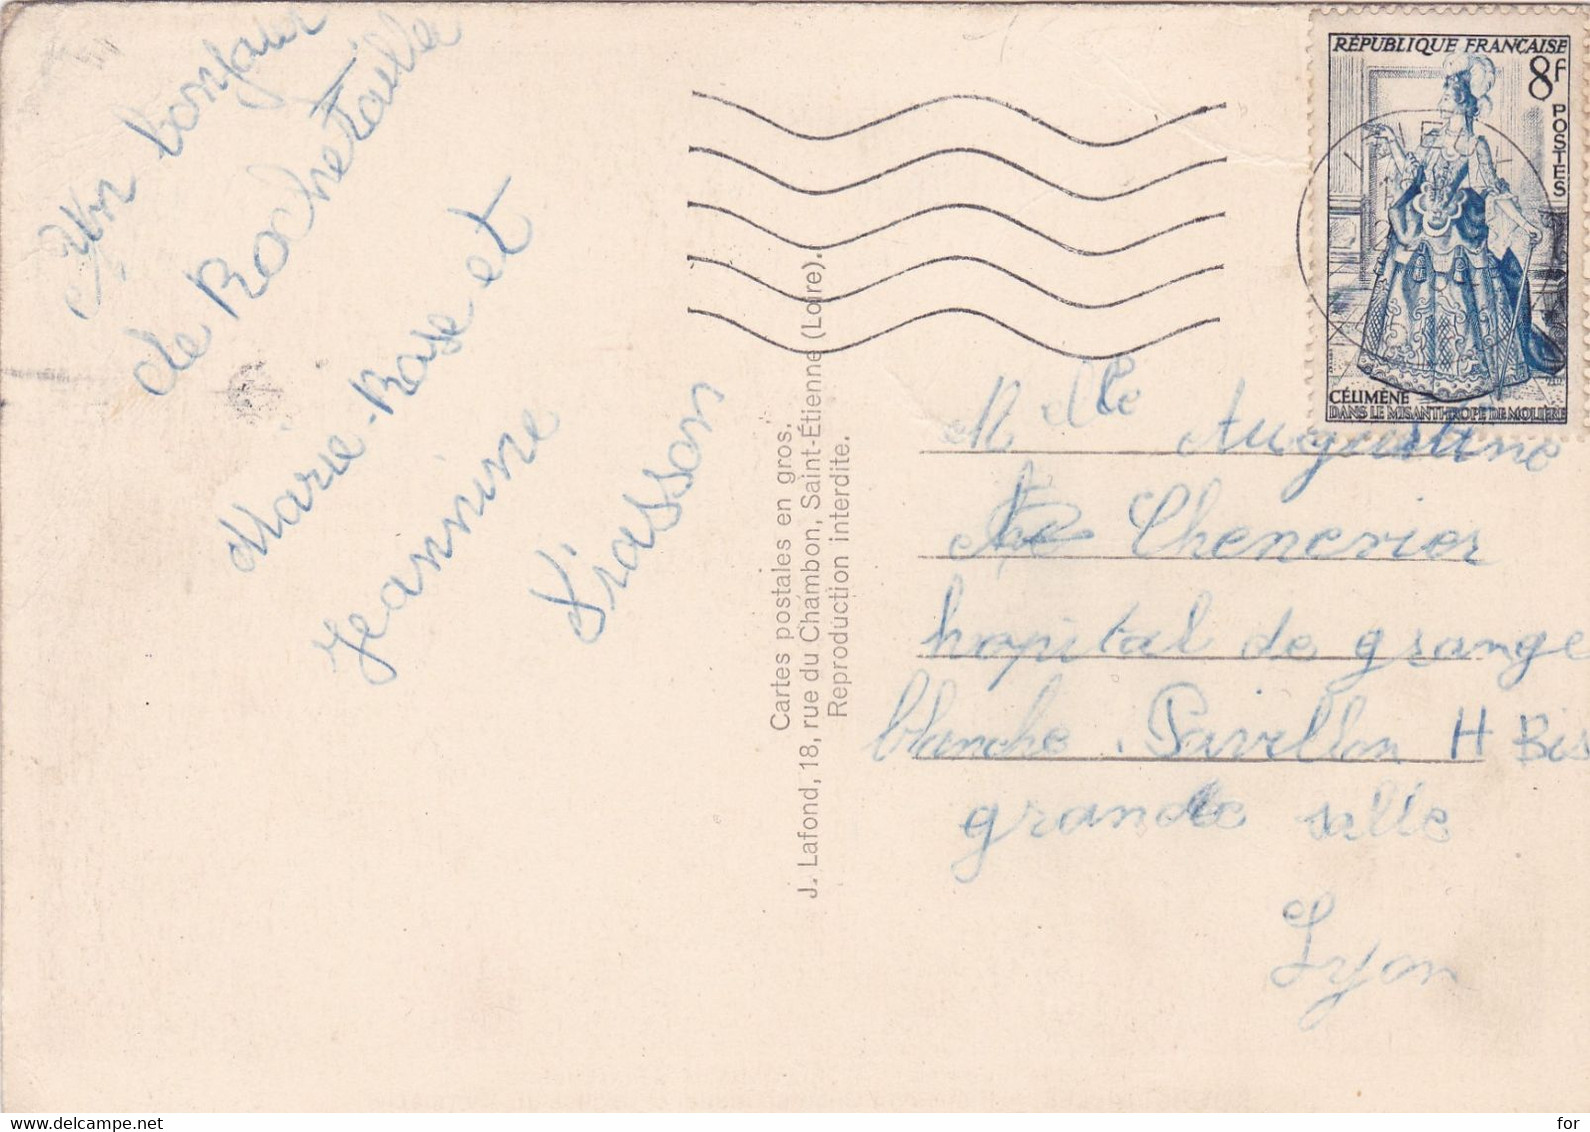 Un bonjour
de Rochetaillée
Marie-Rose et
Jeannine
Cartes postales en gros.
J. Lafond, 18, rue du Chambon, Saint-Étienne (Loire).
Reproduction interdite.
RÉPUBLIQUE FRANÇAISE
8f
POSTES
CÉLIMÈNE
DANS LE MISANTHROPE DE MOLIÈRE
Melle Augustine
Chenevier
hopital de grange
blanche. Pavillon H Bis
grande salle
Lyon
for